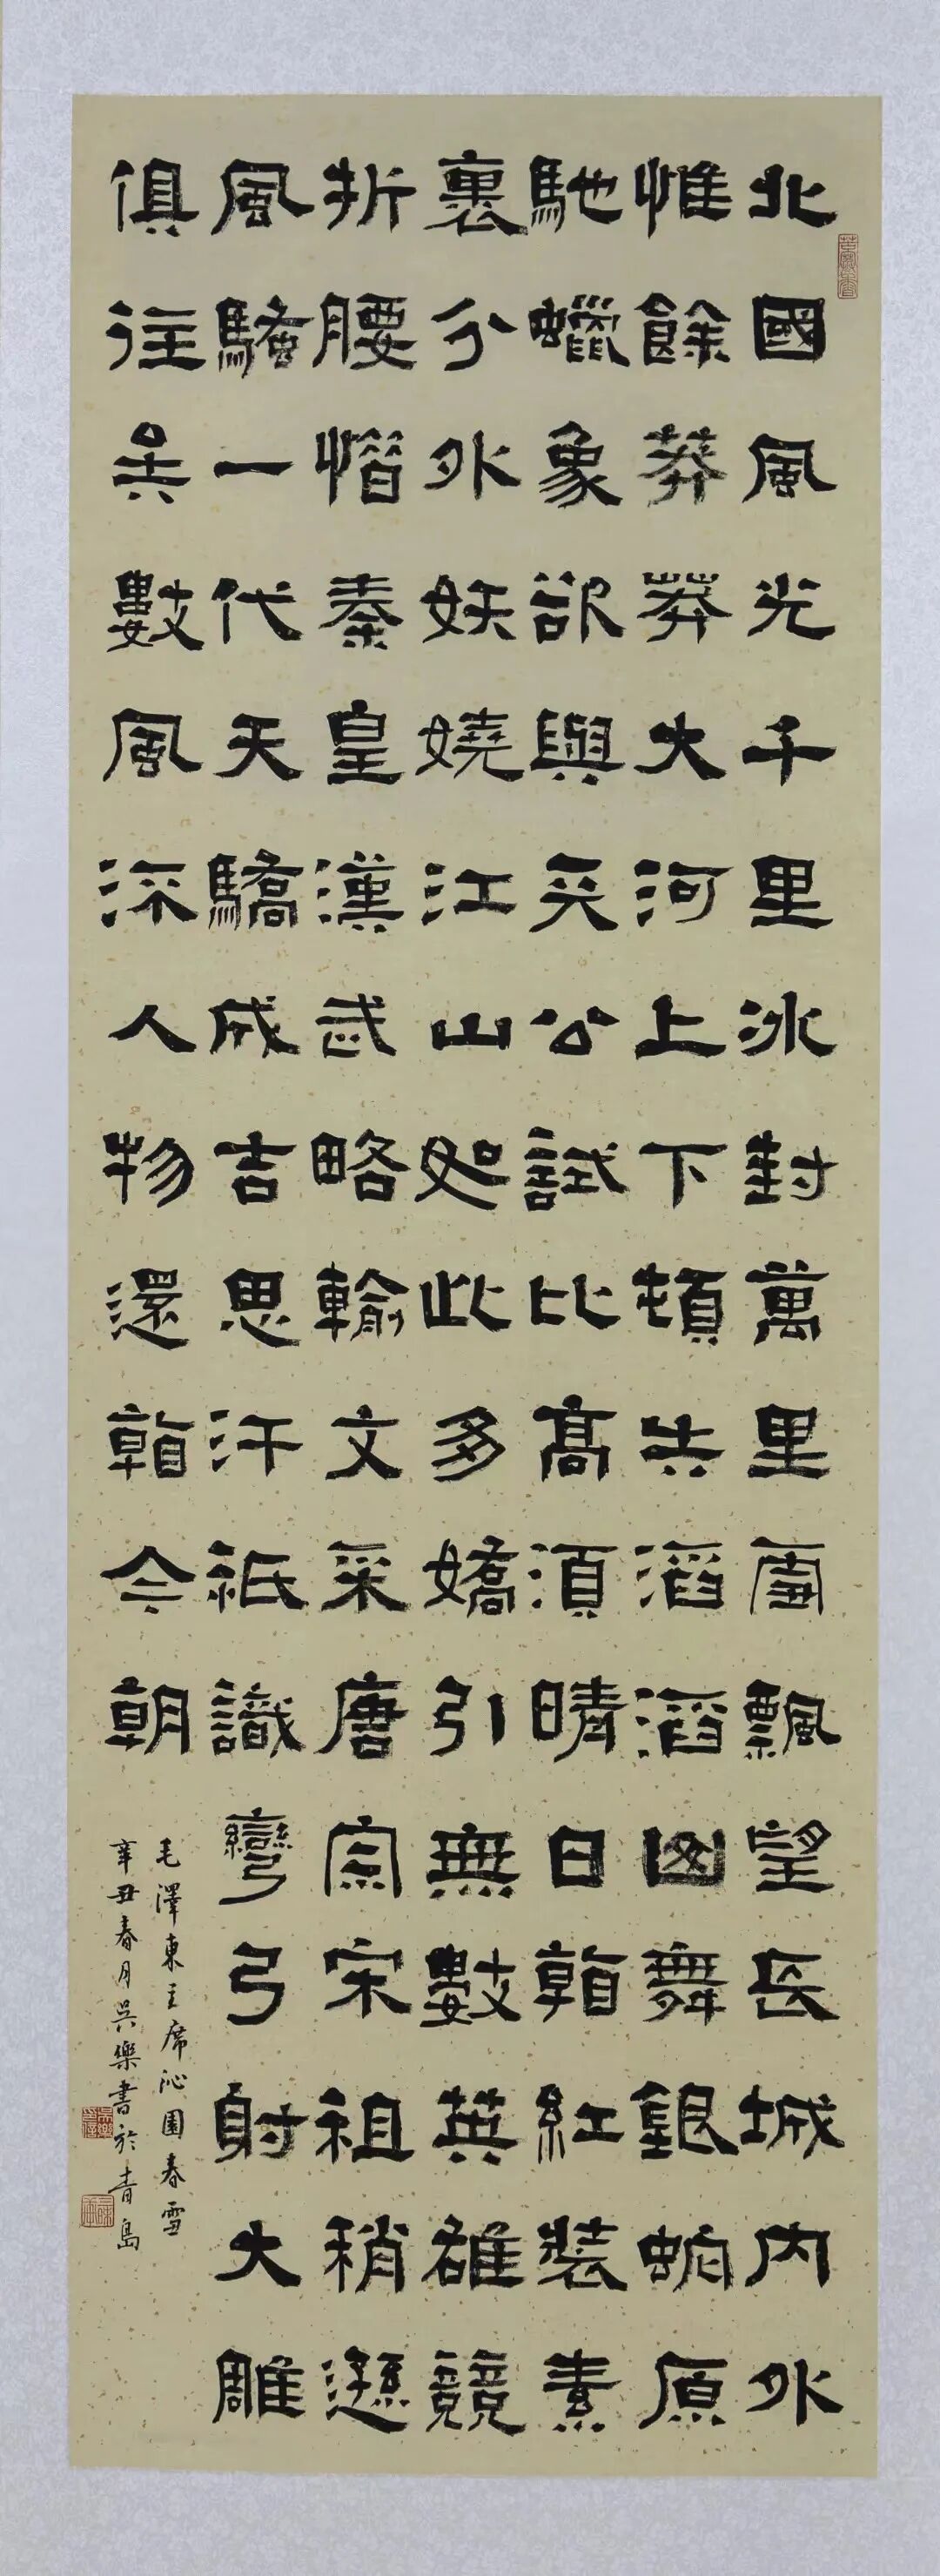 北國風光千里冰封萬里雪飄望長城內外
惟餘莽莽大河上下頓失滔滔山舞銀蛇原
馳蠟象欲與天公試比高須晴日看紅裝素
裹分外妖嬈江山如此多嬌引無數英雄競
折腰惜秦皇漢武略輸文采唐宗宋祖稍遜
風騷一代天驕成吉思汗祇識彎弓射大雕
俱往矣數風流人物還看今朝
毛澤東主席沁園春雪
辛丑春月吳樂書於青島